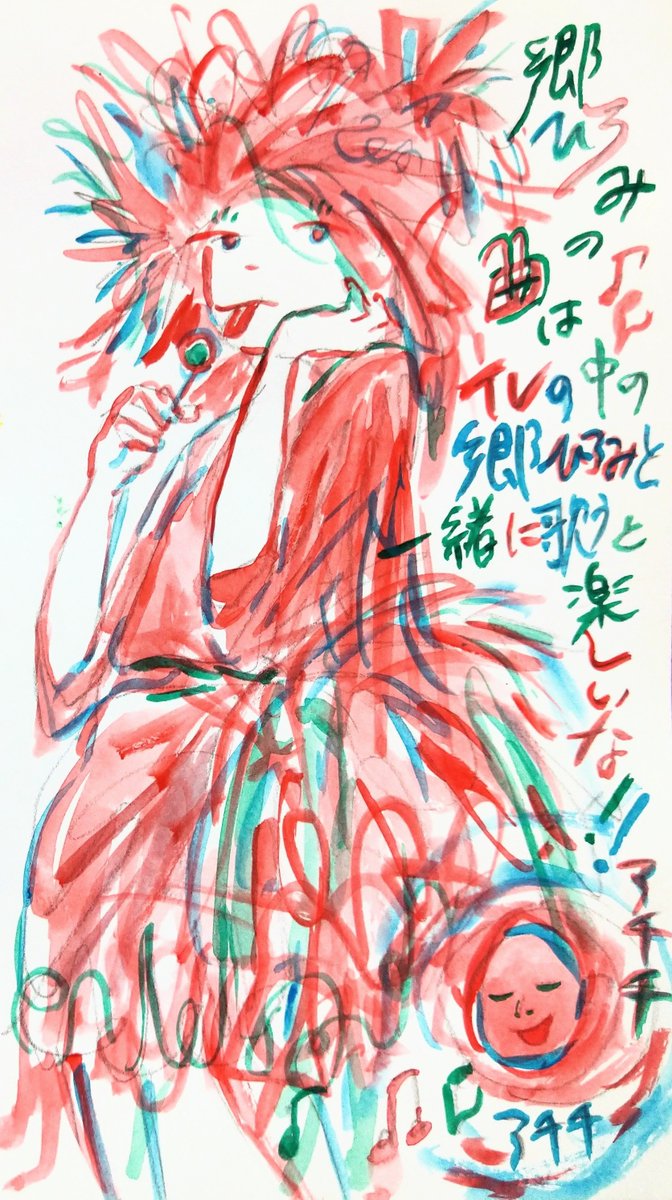 郷ひろ
みの
曲は
イレの中の
郷ひろみと
一緒に歌うと
楽しいな!!
アチチ
アチチ